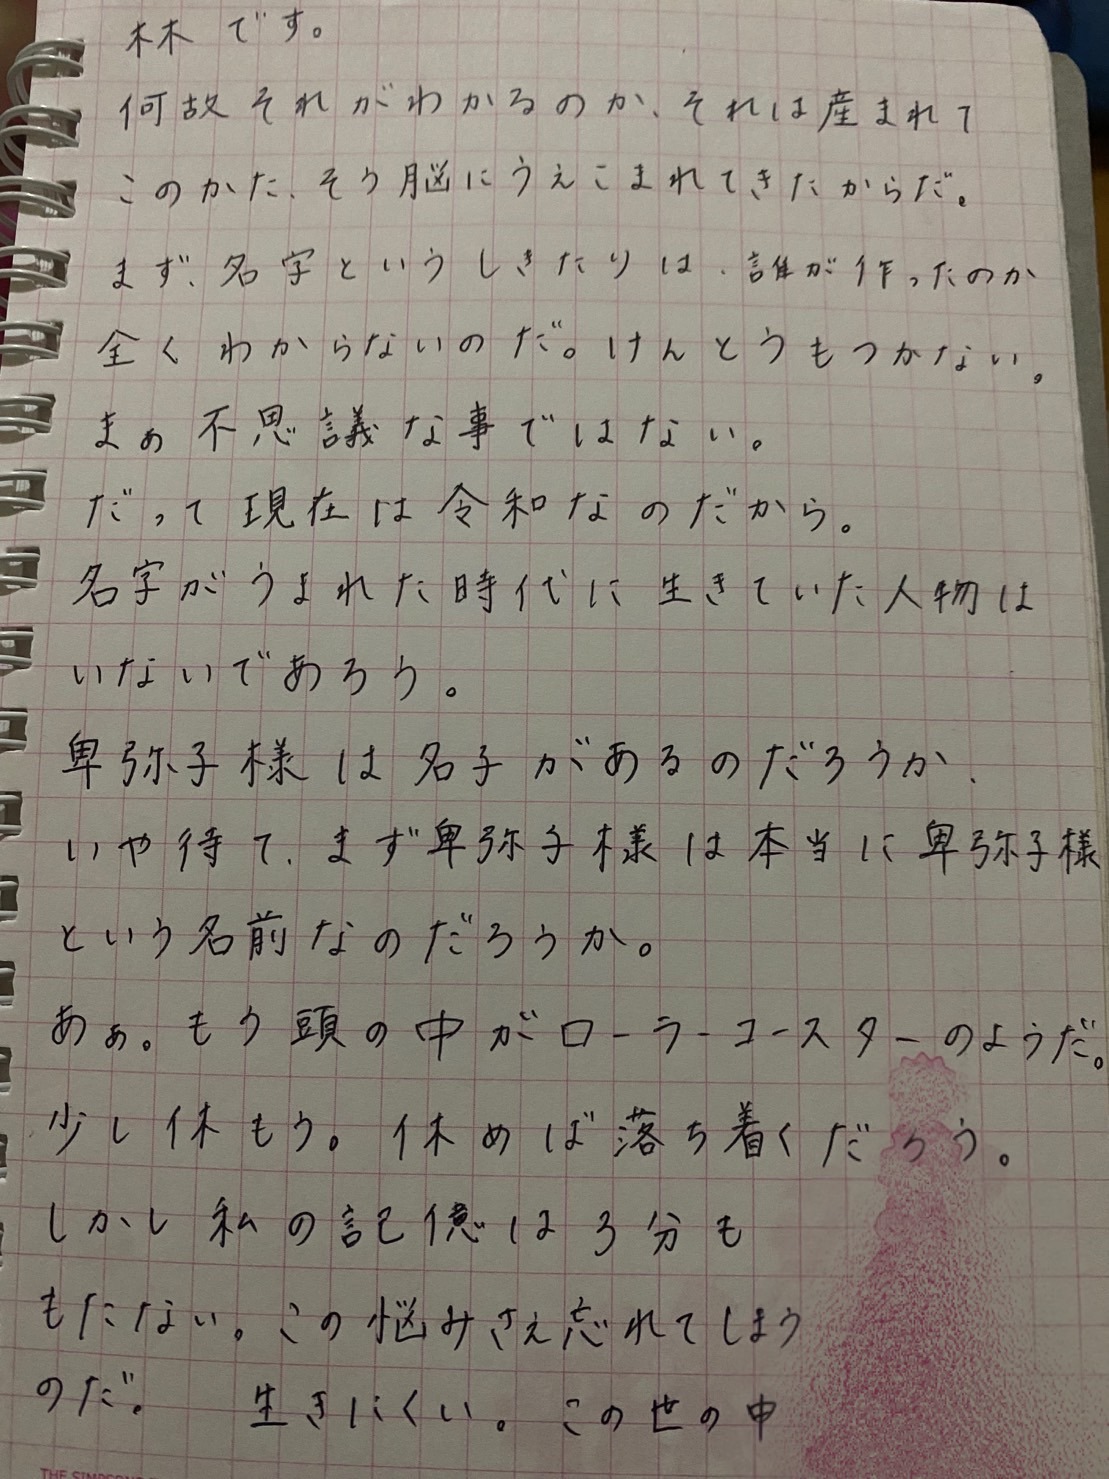 林です。
何故それがわかるのか、それは産まれて
このかた、そう脳にうえこまれてきたからだ。
まず、名字というしきたりは、誰が作ったのか
全くわからないのだ。けんとうもつかない。
まぁ不思議な事ではない。
だって現在は令和なのだから。
名字がうまれた時代に生きていた人物は
いないであろう。
卑弥子様は名子があるのだろうか、
いや待て、まず卑弥子様は本当に卑弥子様
という名前なのだろうか。
あぁ。もう頭の中がローラーコースターのようだ。
少し休もう。休めば落ち着くだろう。
しかし私の記憶は3分も
もたない。この悩みさえ忘れてしまう
のだ。 生きにくい。この世の中
THE SIMPSONS